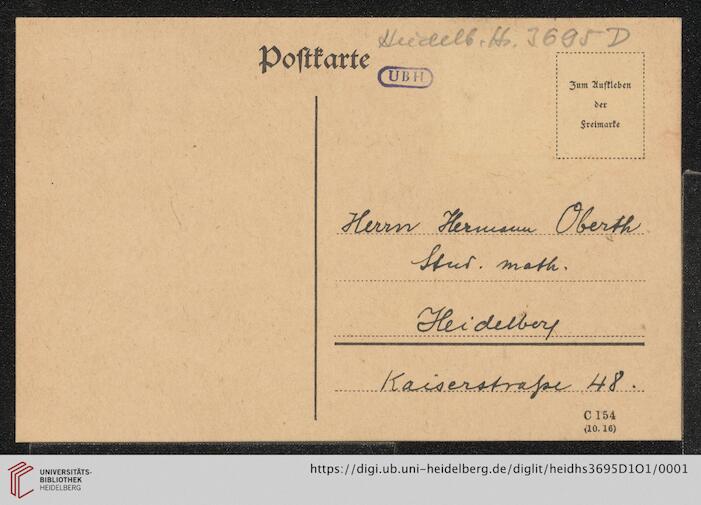 Heidelb. Hs. 3695 D
Postkarte
UBH
Zum Aufkleben
der
Freimarke
Herrn Hermann Oberth
Stud. math.
Heidelberg
Kaiserstraße 48.
C 154
(10. 16)
UNIVERSITÄTS-
BIBLIOTHEK
HEIDELBERG
https://digi.ub.uni-heidelberg.de/diglit/heidhs3695D1O1/0001